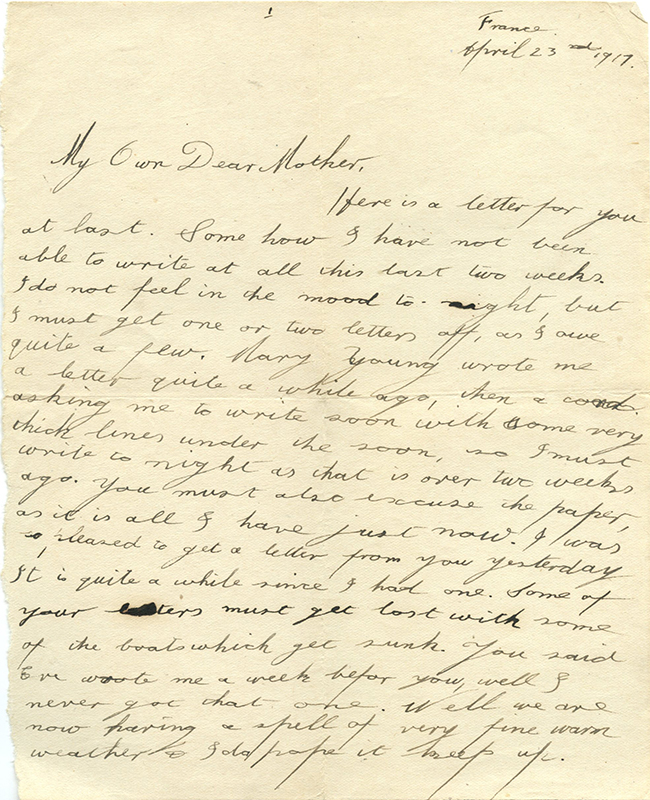 1
France.
April 23rd 1917.
My Own Dear Mother,
Here is a letter for you
at last. Some how I have not been
able to write at all this last two weeks.
I do not feel in the mood to-night, but
I must get one or two letters off, as I owe
quite a few. Mary Young wrote me
a letter quite a while ago, then a card.
asking me to write soon with some very
thick lines under the soon, so I must
write to night as that is over two weeks
ago. You must also excuse the paper,
as it is all I have just now. I was
so pleased to get a letter from you yesterday
It is quite a while since I had one. Some of
your letters must get lost with some
of the boats which get sunk. You said
Eve wrote me a week befor you, well I
never got that one. Well we are
now having a spell of very fine warm
weather & I do hope it keep up.